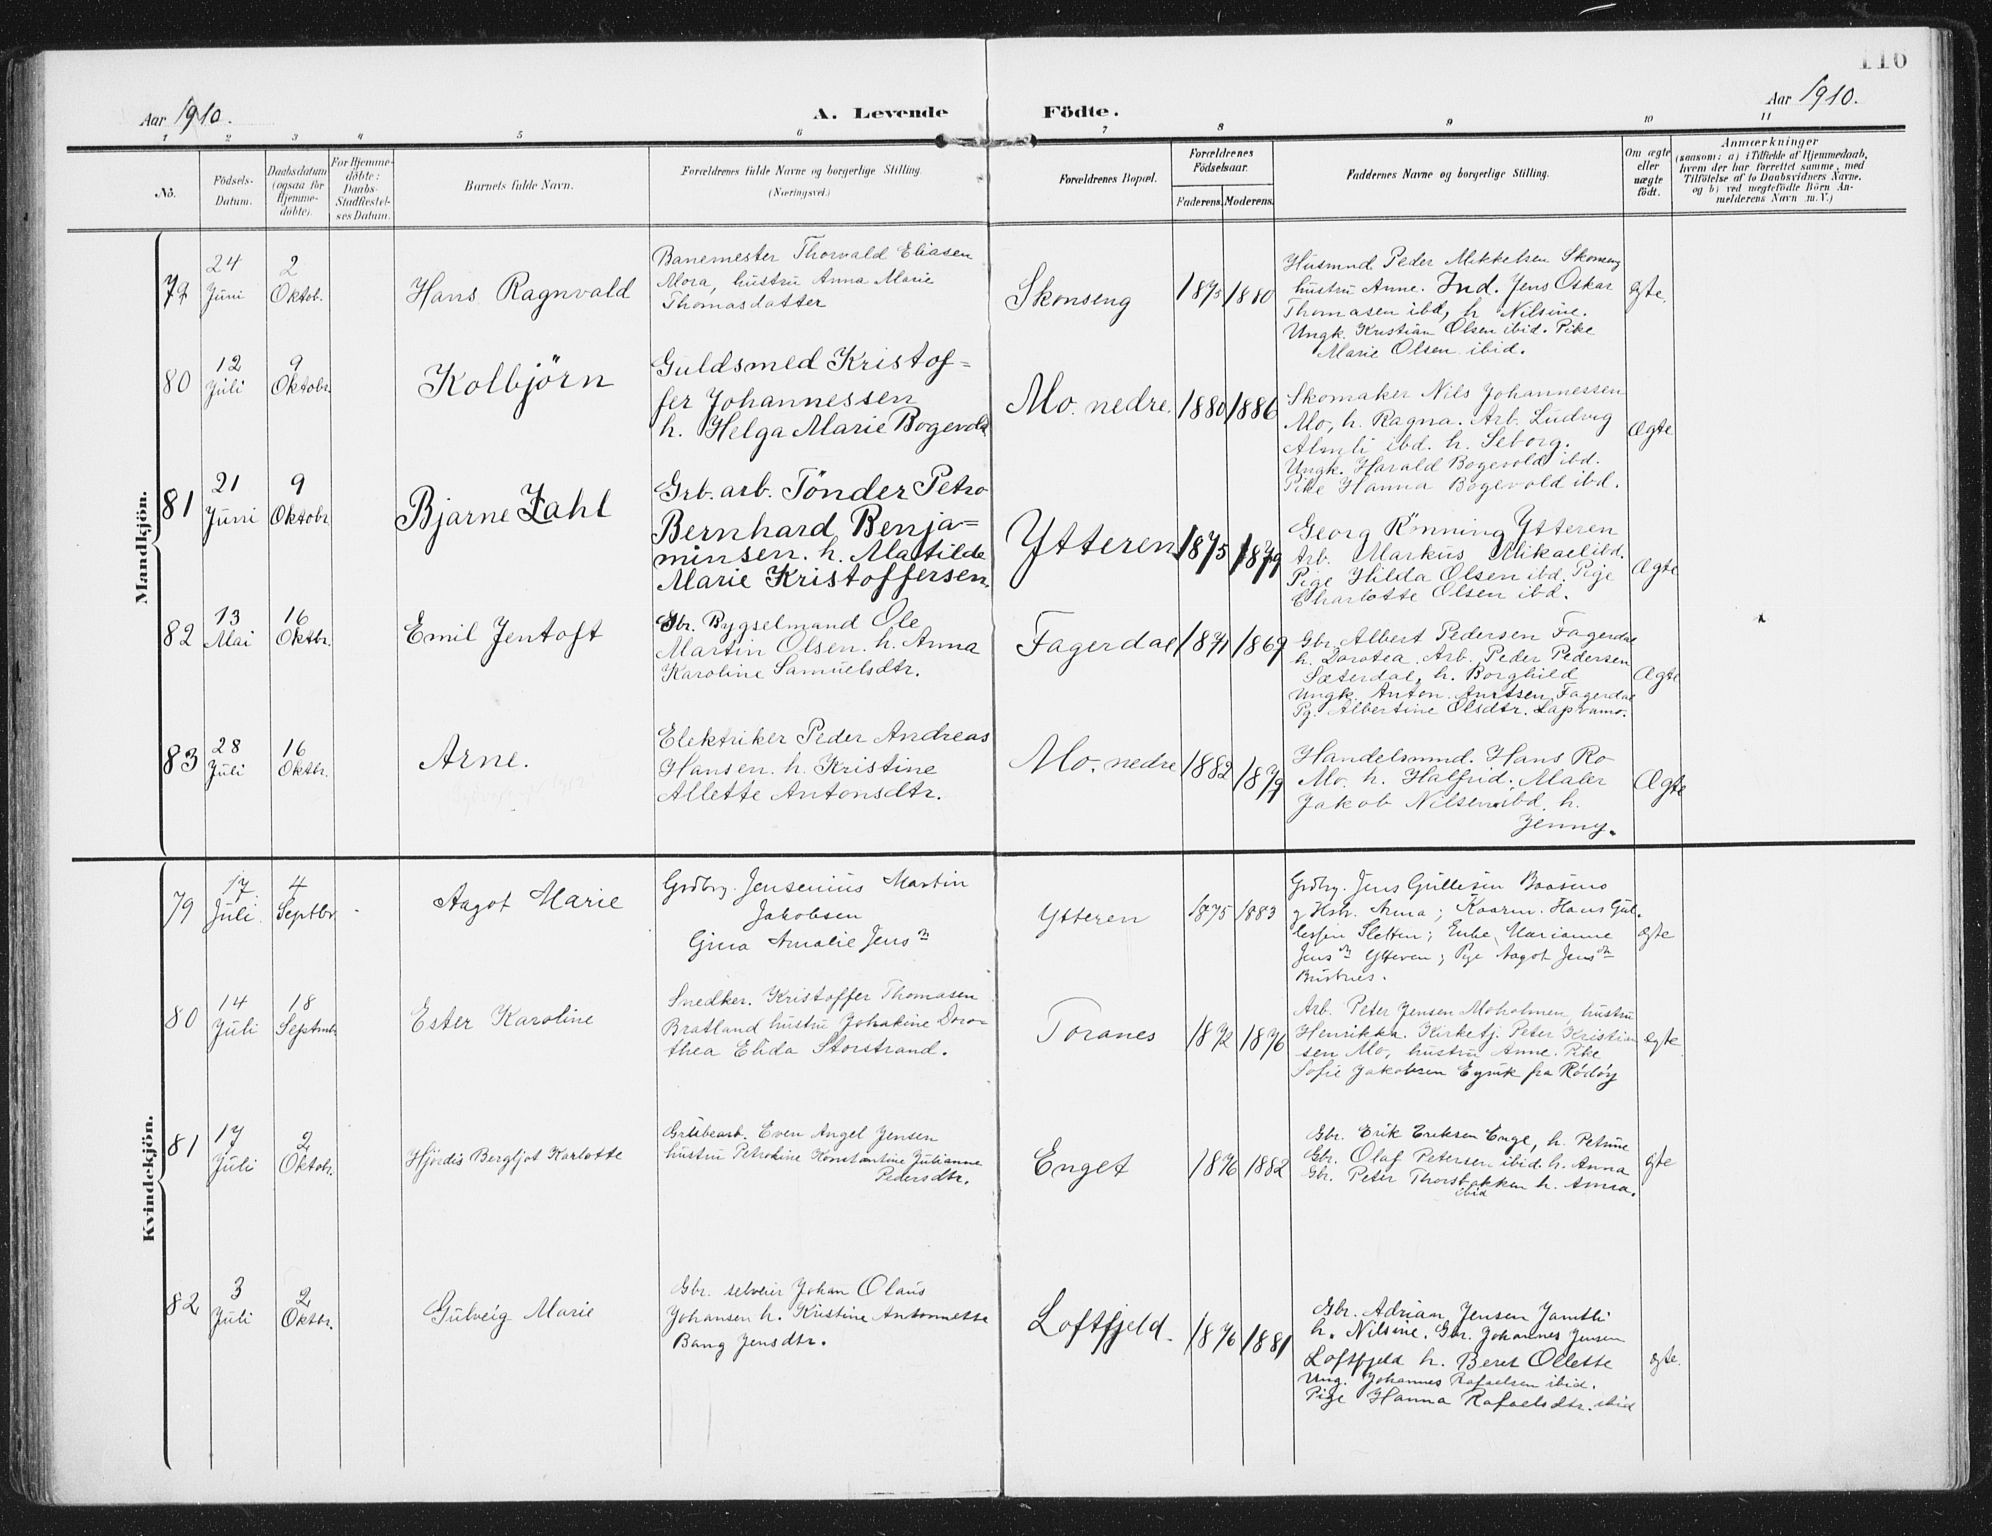 116
Aar 1910.
A. Levende Födte.
Aar 1910.
1 2 3 4 5 6 7 8 9 10 11
No.
Födsels-
Datum.
Daabsdatum
(ogsaa for
Hjemme-
döbte).
For Hjemme-
döbte:
Daabs-
Stadfæstel-
ses Datum.
Barnets fulde Navn.
Forældrenes fulde Navne og borgerlige Stilling.
(Næringsvei.)
Forældrenes Bopæl.
Forældrenes
Födselsaar.
Faderens. Moderens.
Faddernes Navne og borgerlige Stilling.
Om ægte
eller
uægte
födt.
Anmærkninger
(saasom: a) i Tilfælde af Hjemmedaab,
hvem der har forrettet samme, med
Tilföielse af to Daabsvidners Navne,
og b) ved uægtefödte Börn An-
melderens Navn m. V.)
Mandkjön.
79
24
Juni
2
Oktob.
Hans Ragnvald
Banemester Thorvald Eliasen
Mora, hustru Anna Marie
Thomasdatter
Skonseng
1875 1880
Husmnd Peder Mikkelsen Skonseng
hustru Anne. Ind. Jens Oskar
Thomasen ibd, h Nilsine.
Ungk. Kristian Olsen ibid. Pike
Marie Olsen ibid.
ægte.
80
12
Juli
9
Oktobr.
Kolbjörn
Guldsmed Kristof=
fer Johannessen
h. Helga Marie Bogevold
Mo. nedre.
1880 1886
Skomaker Nils Johannessen
Mo, h. Ragna. Arb. Ludvig
Almli ibd. h. Seborg.
Ungk. Harald Bogevold ibd.
Pike Hanna Bogevold ibd.
Ægte
81
21
Juni
9
Oktobr
Bjarne Zahl
Grb. arb. Tönder Petro
Bernhard Benja=
minsen. h. Matilde
Marie Kristoffersen.
Ytteren
1875 1879
Georg Rønning Ytteren
Arb. Markus Mikael ibd.
Pige Hilda Olsen ibd. Pige
Charlotte Olsen ibd.
Ægte
82
13
Mai
16
Oktbr.
Emil Jentoft
Gbr. Bygselmand Ole
Martin Olsen. h. Anna
Karoline Samuelsdtr.
Fagerdal
1871 1869
Gbr. Albert Pedersen Fagerdal
h. Dorotea. Arb. Peder Pedersen
Sæterdal, h. Borghild
Ungk. Anton Fagerdal
Pg. Albertine Olsdtr.
Ægte
83
28
Juli
16
Oktbr.
Arne.
Elektriker Peder Andreas
Hansen. h. Kristine
Allette Antonsdtr.
Mo. nedre
1882 1879
Handelsmnd. Hans Ro-
Mo. h. Halfrid. Maler
Jakob Nilsen ibd. h.
Jenny.
Ægte
Kvindekjön.
79
17.
Juli.
4
Septbr
Aagot Marie
Grdbr. Jensenius Martin
Jakobsen
Gina Amalie Jensn
Ytteren
1875 1883
Grdbr. Jens Gullesen Baasmo
g Hstr. Anna; Kaarm. Hans Gul-
lessen Sletten; Enke Marianne
Jensdtr Ytteren; Pige Aagot Jensdtr
Busnes.
ægte
80
14
Juli
18
Septmbr
Ester Karoline
Snedker. Kristoffer Thomasen
Bratland hustru Johakine Doro-
thea Elida Storstrand.
Toranes
1872 1876
Arb. Peter Jensen Moholmen, hustru
Henrikka. Kirketj. Peter Kristian
sen Mo, hustru Anne. Pike
Sofie Jakobsen fra Rödöy
ægte
81
17
Juli
2
Oktobr.
Hjördis Bergljot Karlotte
Grubearb. Even Angel Jensen
hustru Petroline Konstantine Julianne
Pedersdtr.
Enget
1876 1882
Gbr. Erik Eriksen Enge, h. Petrine
Gbr. Olaf Petersen ibid. h. Anna
Gbr. Peter Thorsbakken h. Anna.
ibid
ægte
82
3
Juli
2
Oktbr.
Gulveig Marie
Gbr. selveier Johan Olaus
Johansen h. Kristine Antonnette
Bang Jensdtr.
Loftfjeld.
1876 1881
Gbr. Adrian Jensen Jamtli
h. Nilsine. Gbr. Johannes Jensen
Loftfjeld h. Beret Ollette
Ung. Johannes Rafaelsen ibid.
Pige Hanna Rafaelsdtr. ibid
ægte.